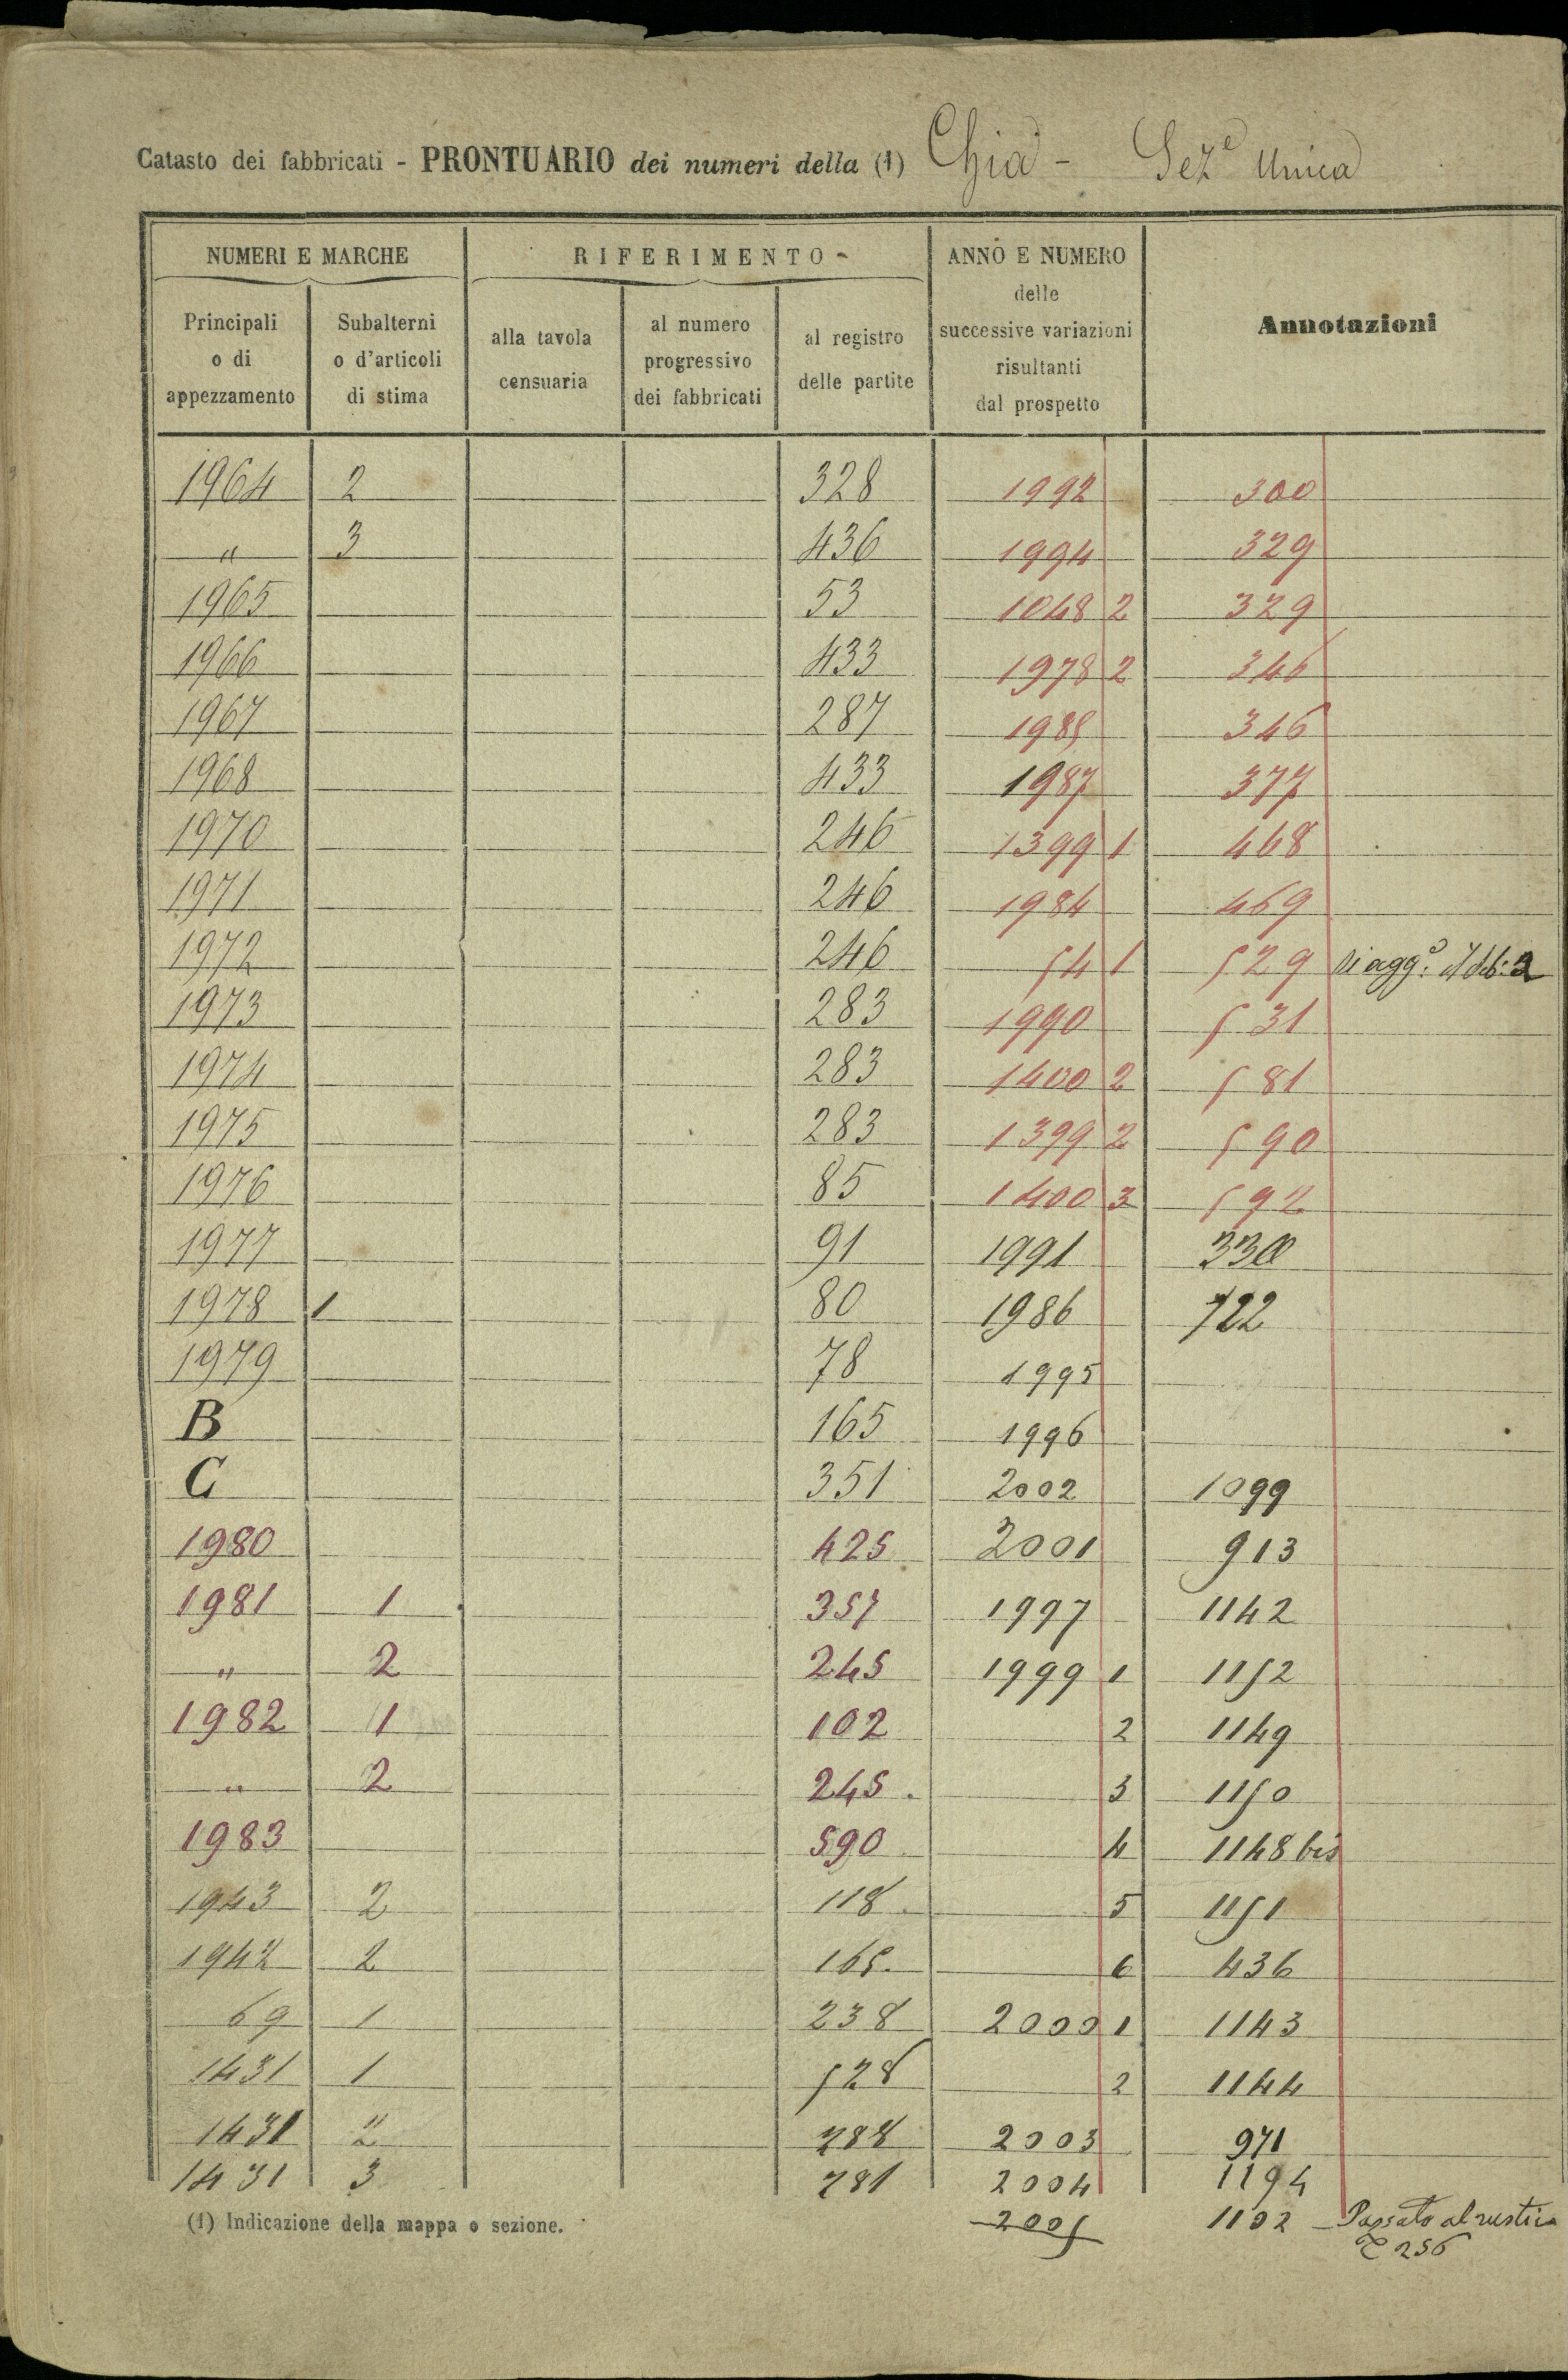 Catasto dei fabbricati - PRONTUARIO dei numeri della (1) Chia - Sez.e Unica
NUMERI E MARCHE RIFERIMENTO ANNO E NUMERO delle successive variazioni risultanti dal prospetto Annotazioni
Principali o di appezzamento Subalterni o d'articoli di stima alla tavola censuaria al numero progressivo dei fabbricati al registro delle partite
1964 2 328 1992 300
" 3 436 1994 329
1965 53 1048 2 329
1966 433 1978 2 346
1967 287 1985 346
1968 433 1987 377
1970 246 1399 1 468
1971 246 1984 469
1972 246 54 1 529 si agg.
1973 283 1990 531
1974 283 1400 2 581
1975 283 1399 2 590
1976 85 1400 3 592
1977 91 1991 330
1978 1 80 1986 722
1979 78 1995
B 165 1996
C 351 2002 1099
1980 425 2001 913
1981 1 357 1997 1142
" 2 245 1999 1 1152
1982 1 102 2 1149
" 2 245 3 1150
1983 590 4 1148 bis
1943 2 118 5 1151
1942 2 165 6 436
69 1 238 2000 1 1143
1431 1 528 2 1144
1431 2 2003 971
1431 3 781 2004 1194
(1) Indicazione della mappa o sezione. 2005 1102 Passato al rustico
256